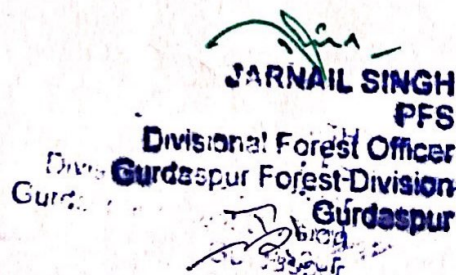 JARNAIL SINGH
PFS
Divisional Forest Officer
Gurdaspur Forest-Division
Gurdaspur